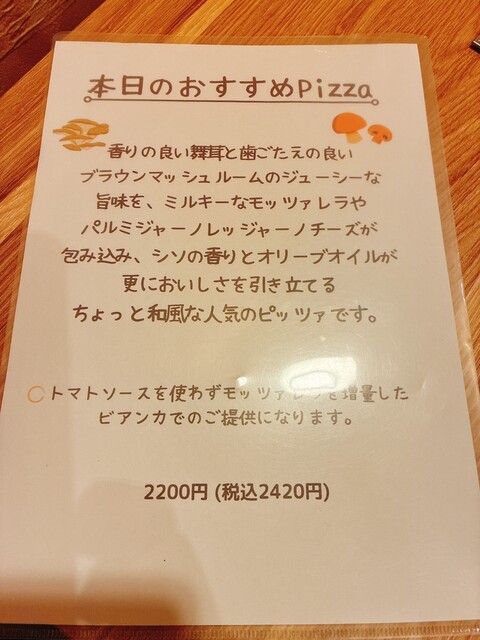 本日のおすすめPizza
香りの良い舞茸と歯ごたえの良い
ブラウンマッシュルームのジューシーな
旨味を、ミルキーなモッツァレラや
パルミジャーノレッジャーノチーズが
包み込み、シソの香りとオリーブオイルが
更においしさを引き立てる
ちょっと和風な人気のピッツァです。
○トマトソースを使わずモッツァレラを増量した
ビアンカでのご提供になります。
2200円 (税込2420円)